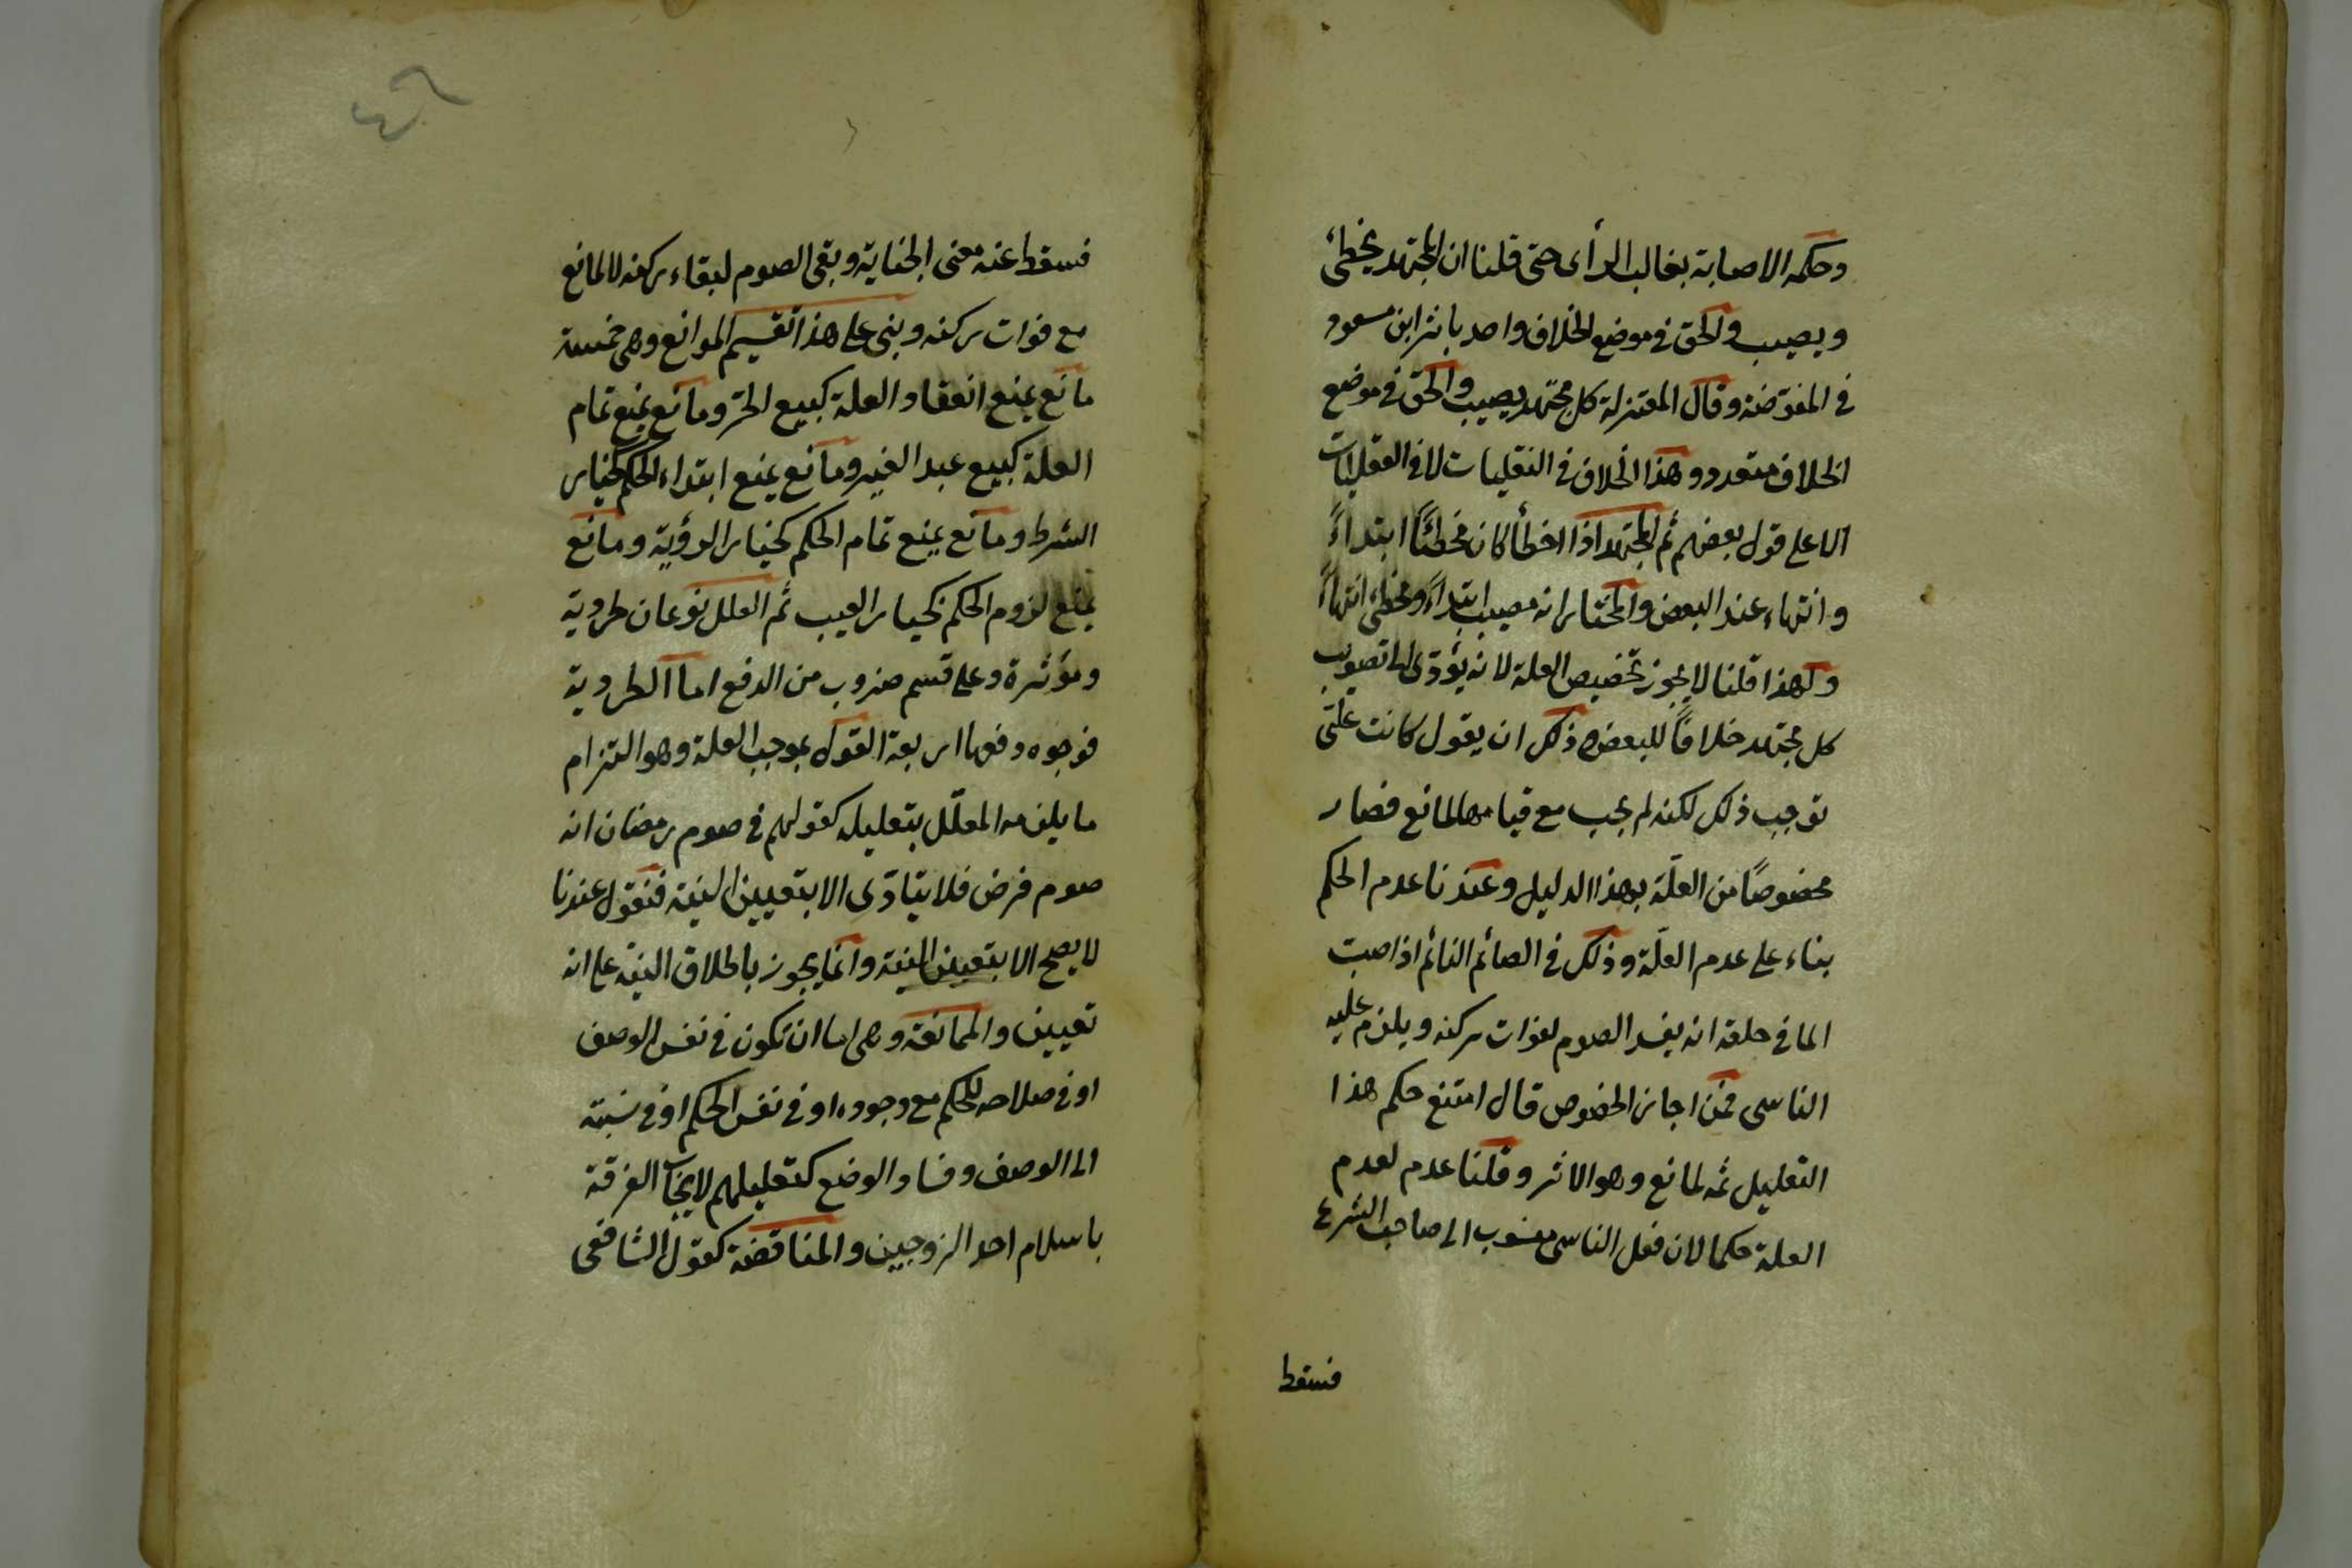 وحكمه الاصابة بغالب الرأى حتى قلنا ان المجتهد يخطئ
ويصيب والحق في موضع الخلاف واحد باثر ابن مسعود
في المفوّضة وقال المعتزلة كل مجتهد يصيب والحق في موضع
الخلاف متعدد وهذا الخلاف في النقليات لا في العقليات
الا على قول بعضهم ثم المجتهد اذا اخطأ كان مخطئاً ابتداءً
وانتهاء عند البعض والمختار انه مصيب ابتداءً ومخطئ انتهاءً
ولهذا قلنا لا يجوز تخصيص العلة لانه يؤدّى الى تصويب
كل مجتهد خلافاً للبعض وذلك ان يقول كانت علّتى
توجب ذلك لكنه لم يجب مع قيامها لمانع فصار
مخصوصًا من العلّة بهذا الدليل وعندنا عدم الحكم
بناء على عدم العلّة وذلك في الصائم النائم اذا صبت
الما في حلقه انه يفسد الصوم لفوات ركنه ويلزم عليه
الناسى فمن اجاز الخصوص قال امتنع حكم هذا
التعليل ثمه لمانع وهو الاثر وقلنا عدم لعدم
العلة حكما لان فعل الناسى منسوب الى صاحب الشرع
فسقط
٤٦
فسقط عنه معنى الجناية وبقى الصوم لبقاء ركنه لا لمانع
مع فوات ركنه وبنى على هذا تقسيم الموانع وهى خمسة
مانع يمنع انعقاد العلة كبيع الحرّ ومانع يمنع تمام
العلة كبيع عبد الغير ومانع يمنع ابتداء الحكم كخيار
الشرط ومانع يمنع تمام الحكم كخيار الرؤية ومانع
يمنع لزوم الحكم كخيار العيب ثم العلل نوعان طردية
ومؤثرة وعلى قسم ضروب من الدفع اما الطردية
فوجوه دفعها اربعة القول بموجب العلة وهو التزام
ما يلزمه المعلّل بتعليله كقولهم في صوم رمضان انه
صوم فرض فلا يتادّى الا بتعيين النية فنقول عندنا
لا يصح الا بتعيين النية وانما يجوز باطلاق النية على انه
تعيين والممانعة وهى اما ان تكون في نفس الوصف
او في صلاحه للحكم مع وجوده او في نفس الحكم او في نسبته
الى الوصف وفساد الوضع كتعليلهم لايجاب الفرقة
باسلام احد الزوجين والمناقضة كقول الشافعى